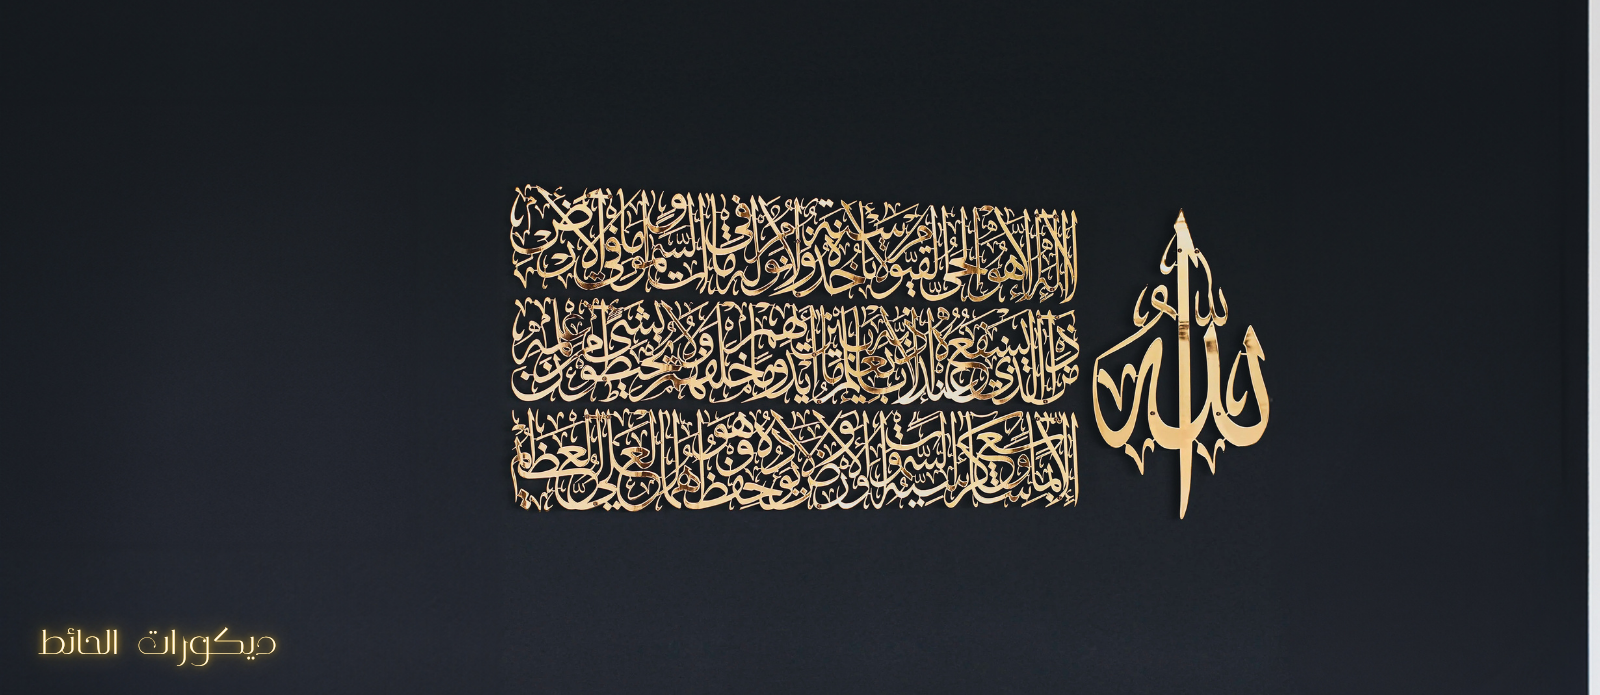 الله
لا إله إلا هو الحي القيوم لا تأخذه سنة ولا نوم له ما في السموات وما في الأرض
من ذا الذي يشفع عنده إلا بإذنه يعلم ما بين أيديهم وما خلفهم ولا يحيطون بشيء من علمه
إلا بما شاء وسع كرسيه السموات والأرض ولا يؤوده حفظهما وهو العلي العظيم
ديكورات الحائط